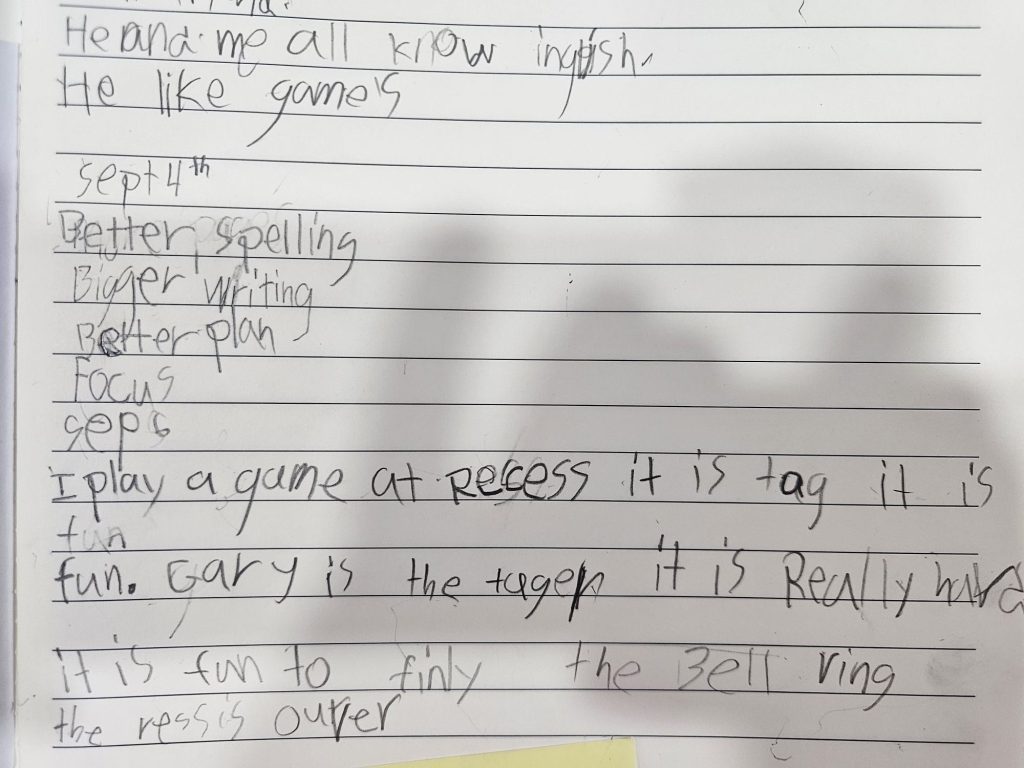 He and me all know inglish.
He like game's
sept 4th
Better spelling
Bigger writing
Better plan
Focus
sep 6
I play a game at Recess it is tag it is
fun
fun. Gary is the tager it is Really hard
it is fun to finly the Bell ring
the ressis ouver